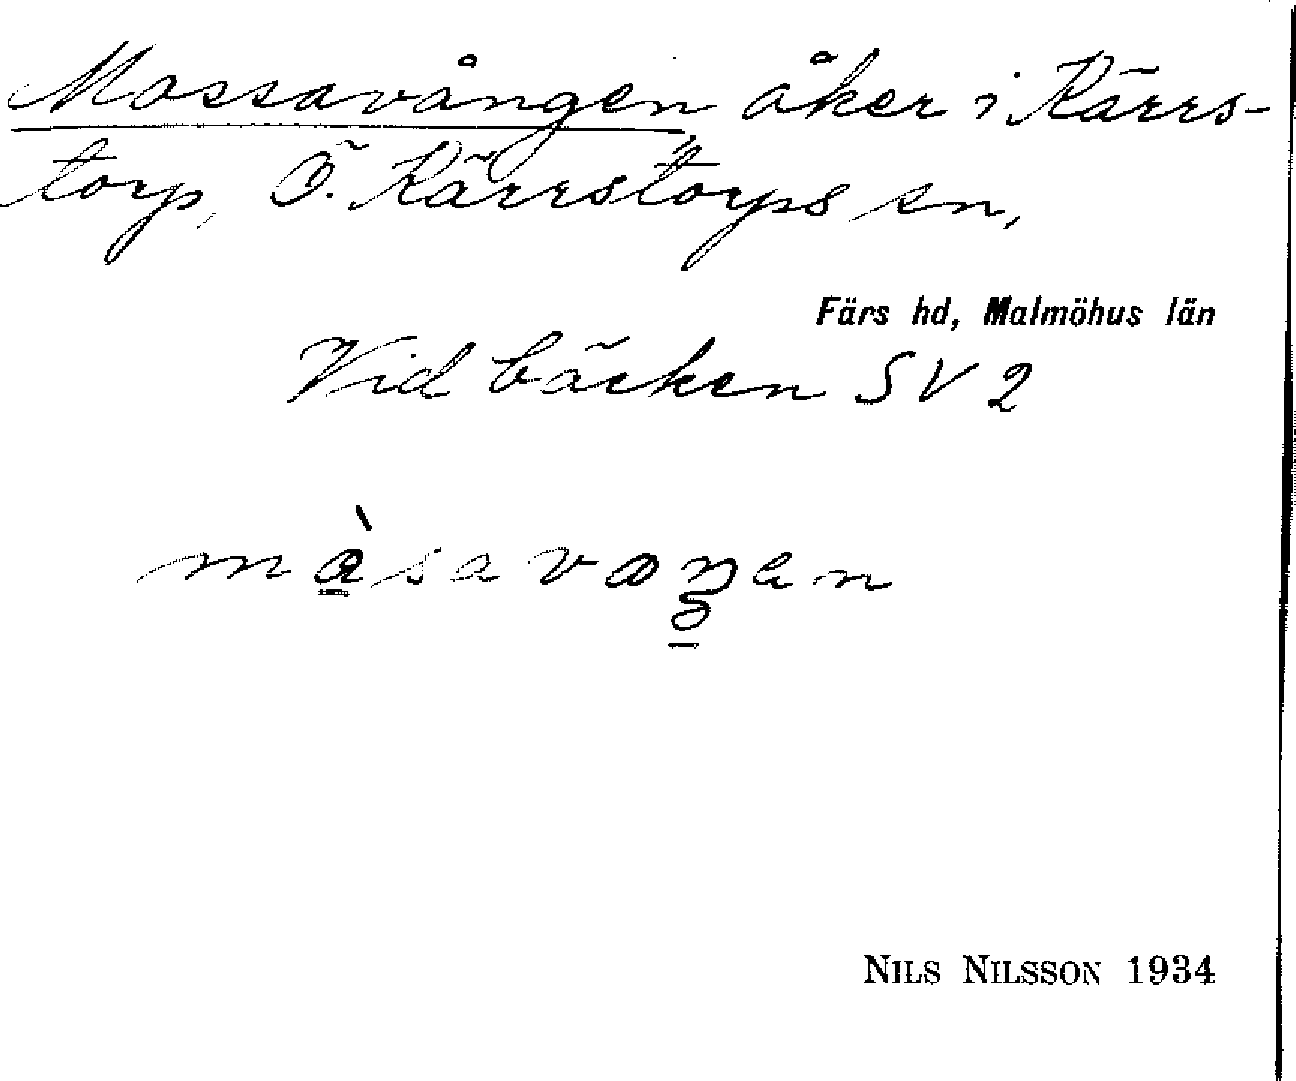 Mossavången åker i Kärrs-
torp, Ö. Kärrstorps sn,
Färs hd, Malmöhus län
Vid bäcken SV 2
NILS NILSSON 1934